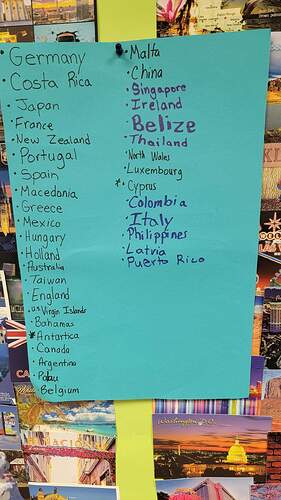 • Germany
• Costa Rica
• Japan
• France
• New Zealand
• Portugal
• Spain
• Macedonia
• Greece
• Mexico
• Hungary
• Holland
• Australia
• Taiwan
• England
• US Virgin Islands
• Bahamas
* Antartica
• Canada
• Argentina
• Palau
• Belgium
• Malta
• China
• Singapore
• Ireland
• Belize
• Thailand
• North Wales
• Luxembourg
* Cyprus
• Colombia
• Italy
• Philippines
• Latvia
• Puerto Rico
Washington, D.C.